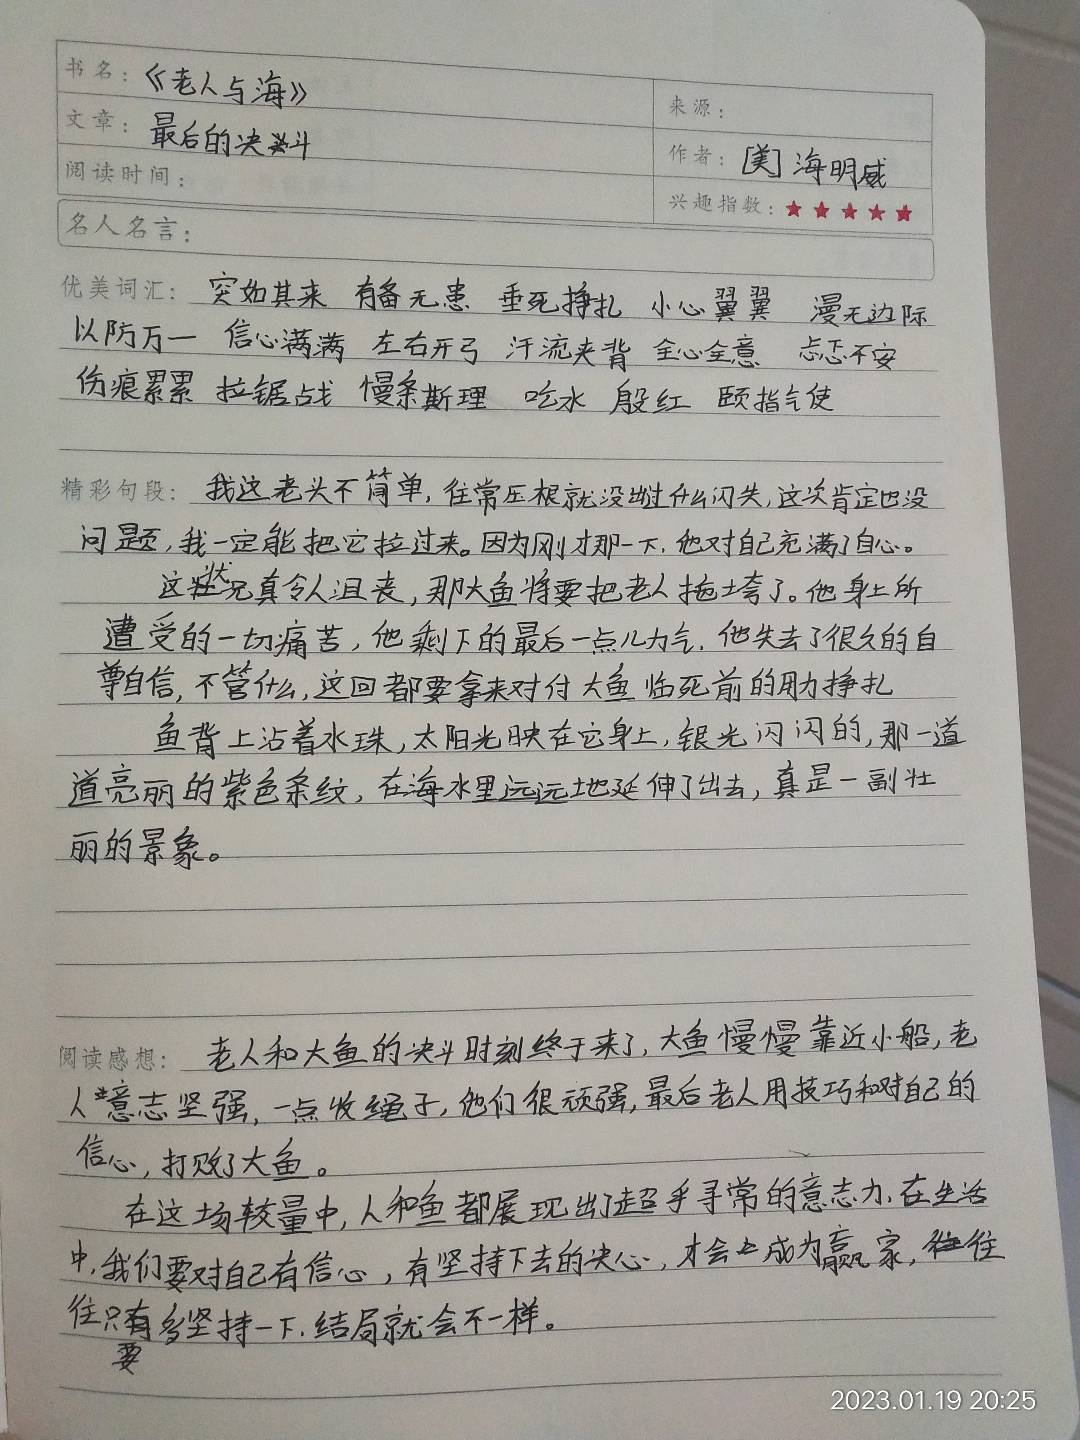 书名：《老人与海》
来源：
文章：最后的决斗
作者：[美]海明威
阅读时间：
兴趣指数：★★★★★
名人名言：
优美词汇：突如其来 有备无患 垂死挣扎 小心翼翼 漫无边际
以防万一 信心满满 左右开弓 汗流夹背 全心全意 忐忑不安
伤痕累累 拉锯战 慢条斯理 吃水 殷红 颐指气使
精彩句段：我这老头不简单，往常压根就没出过什么闪失，这次肯定也没
问题，我一定能把它拉过来。因为刚才那一下，他对自己充满了自心。
这状况真令人沮丧，那大鱼将要把老人拖垮了。他身上所
遭受的一切痛苦，他剩下的最后一点儿力气，他失去了很久的自
尊自信，不管什么，这回都要拿来对付大鱼临死前的用力挣扎
鱼背上沾着水珠，太阳光映在它身上，银光闪闪的，那一道
道亮丽的紫色条纹，在海水里远远地延伸了出去，真是一副壮
丽的景象。
阅读感想：老人和大鱼的决斗时刻终于来了，大鱼慢慢靠近小船，老
人意志坚强，一点收绳子，他们很顽强，最后老人用技巧和对自己的
信心，打败了大鱼。
在这场较量中，人和鱼都展现出了超乎寻常的意志力，在生活
中，我们要对自己有信心，有坚持下去的决心，才会成为赢家，往
往只要多坚持一下，结局就会不一样。
2023.01.19 20:25